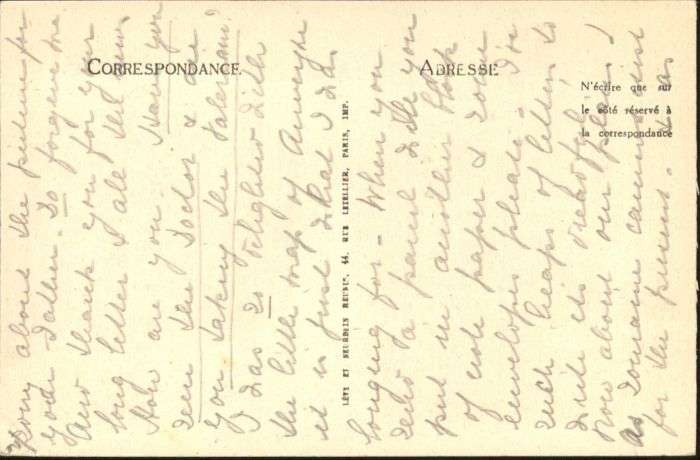 CORRESPONDANCE
ADRESSE
N'écrire que sur
le côté réservé à
la correspondance
LÉVY ET NEURDEIN RÉUNIS, 44, RUE LETELLIER, PARIS, IMP.
sorry about the picture for
your Father. Do forgive me
And thank you for your
long letter & all the news
How are you. Have you
seen the Doctor & are
you taking the Valerian?
I was so delighted with
the little map of Auvergne
it is just what I was
longing for - When you
send a parcel will you
put in another block
of note paper & some
envelopes please - I've
such heaps of letters to
write its dreadful.
Now about our plans!
as cannot
for the present. as